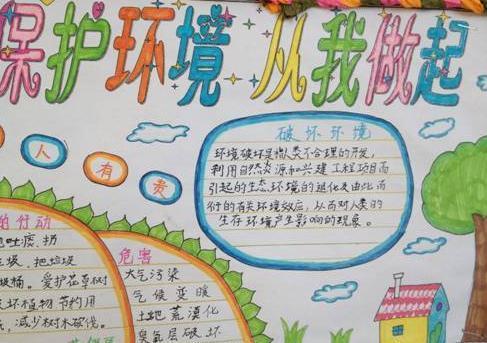 保护环境 从我做起
人有责
破坏环境
环境破坏是指人类不合理的开发,
利用自然资源和兴建工程项目而
引起的生态环境的退化及由此而
衍的有关环境效应,从而对人类的
生存环境产生影响的现象。
的行动
吐痰、扔
圾、把垃圾
圾桶。爱护花草树
坏植物节约用
减少树木砍伐。
危害
大气污染
气候变暖
土地荒漠化
臭氧层破坏